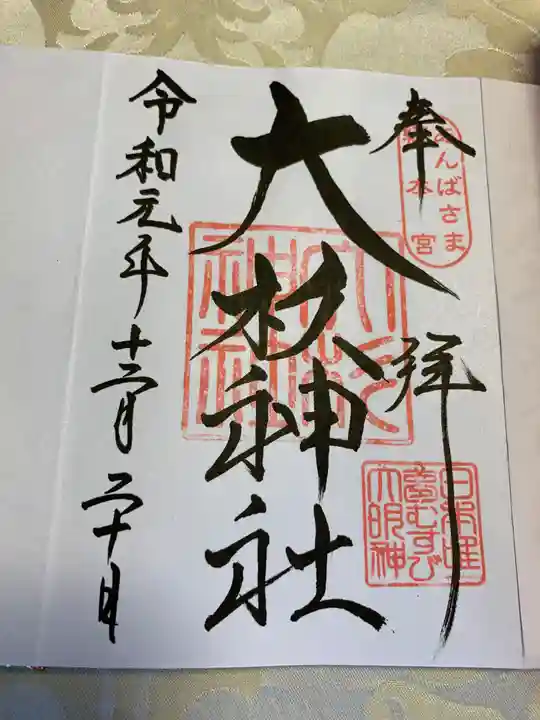 奉拝
あんばさま
総本宮
大杉神社
大杉
神社
日本唯一
夢むすび
大明神
令和元年十二月二十日